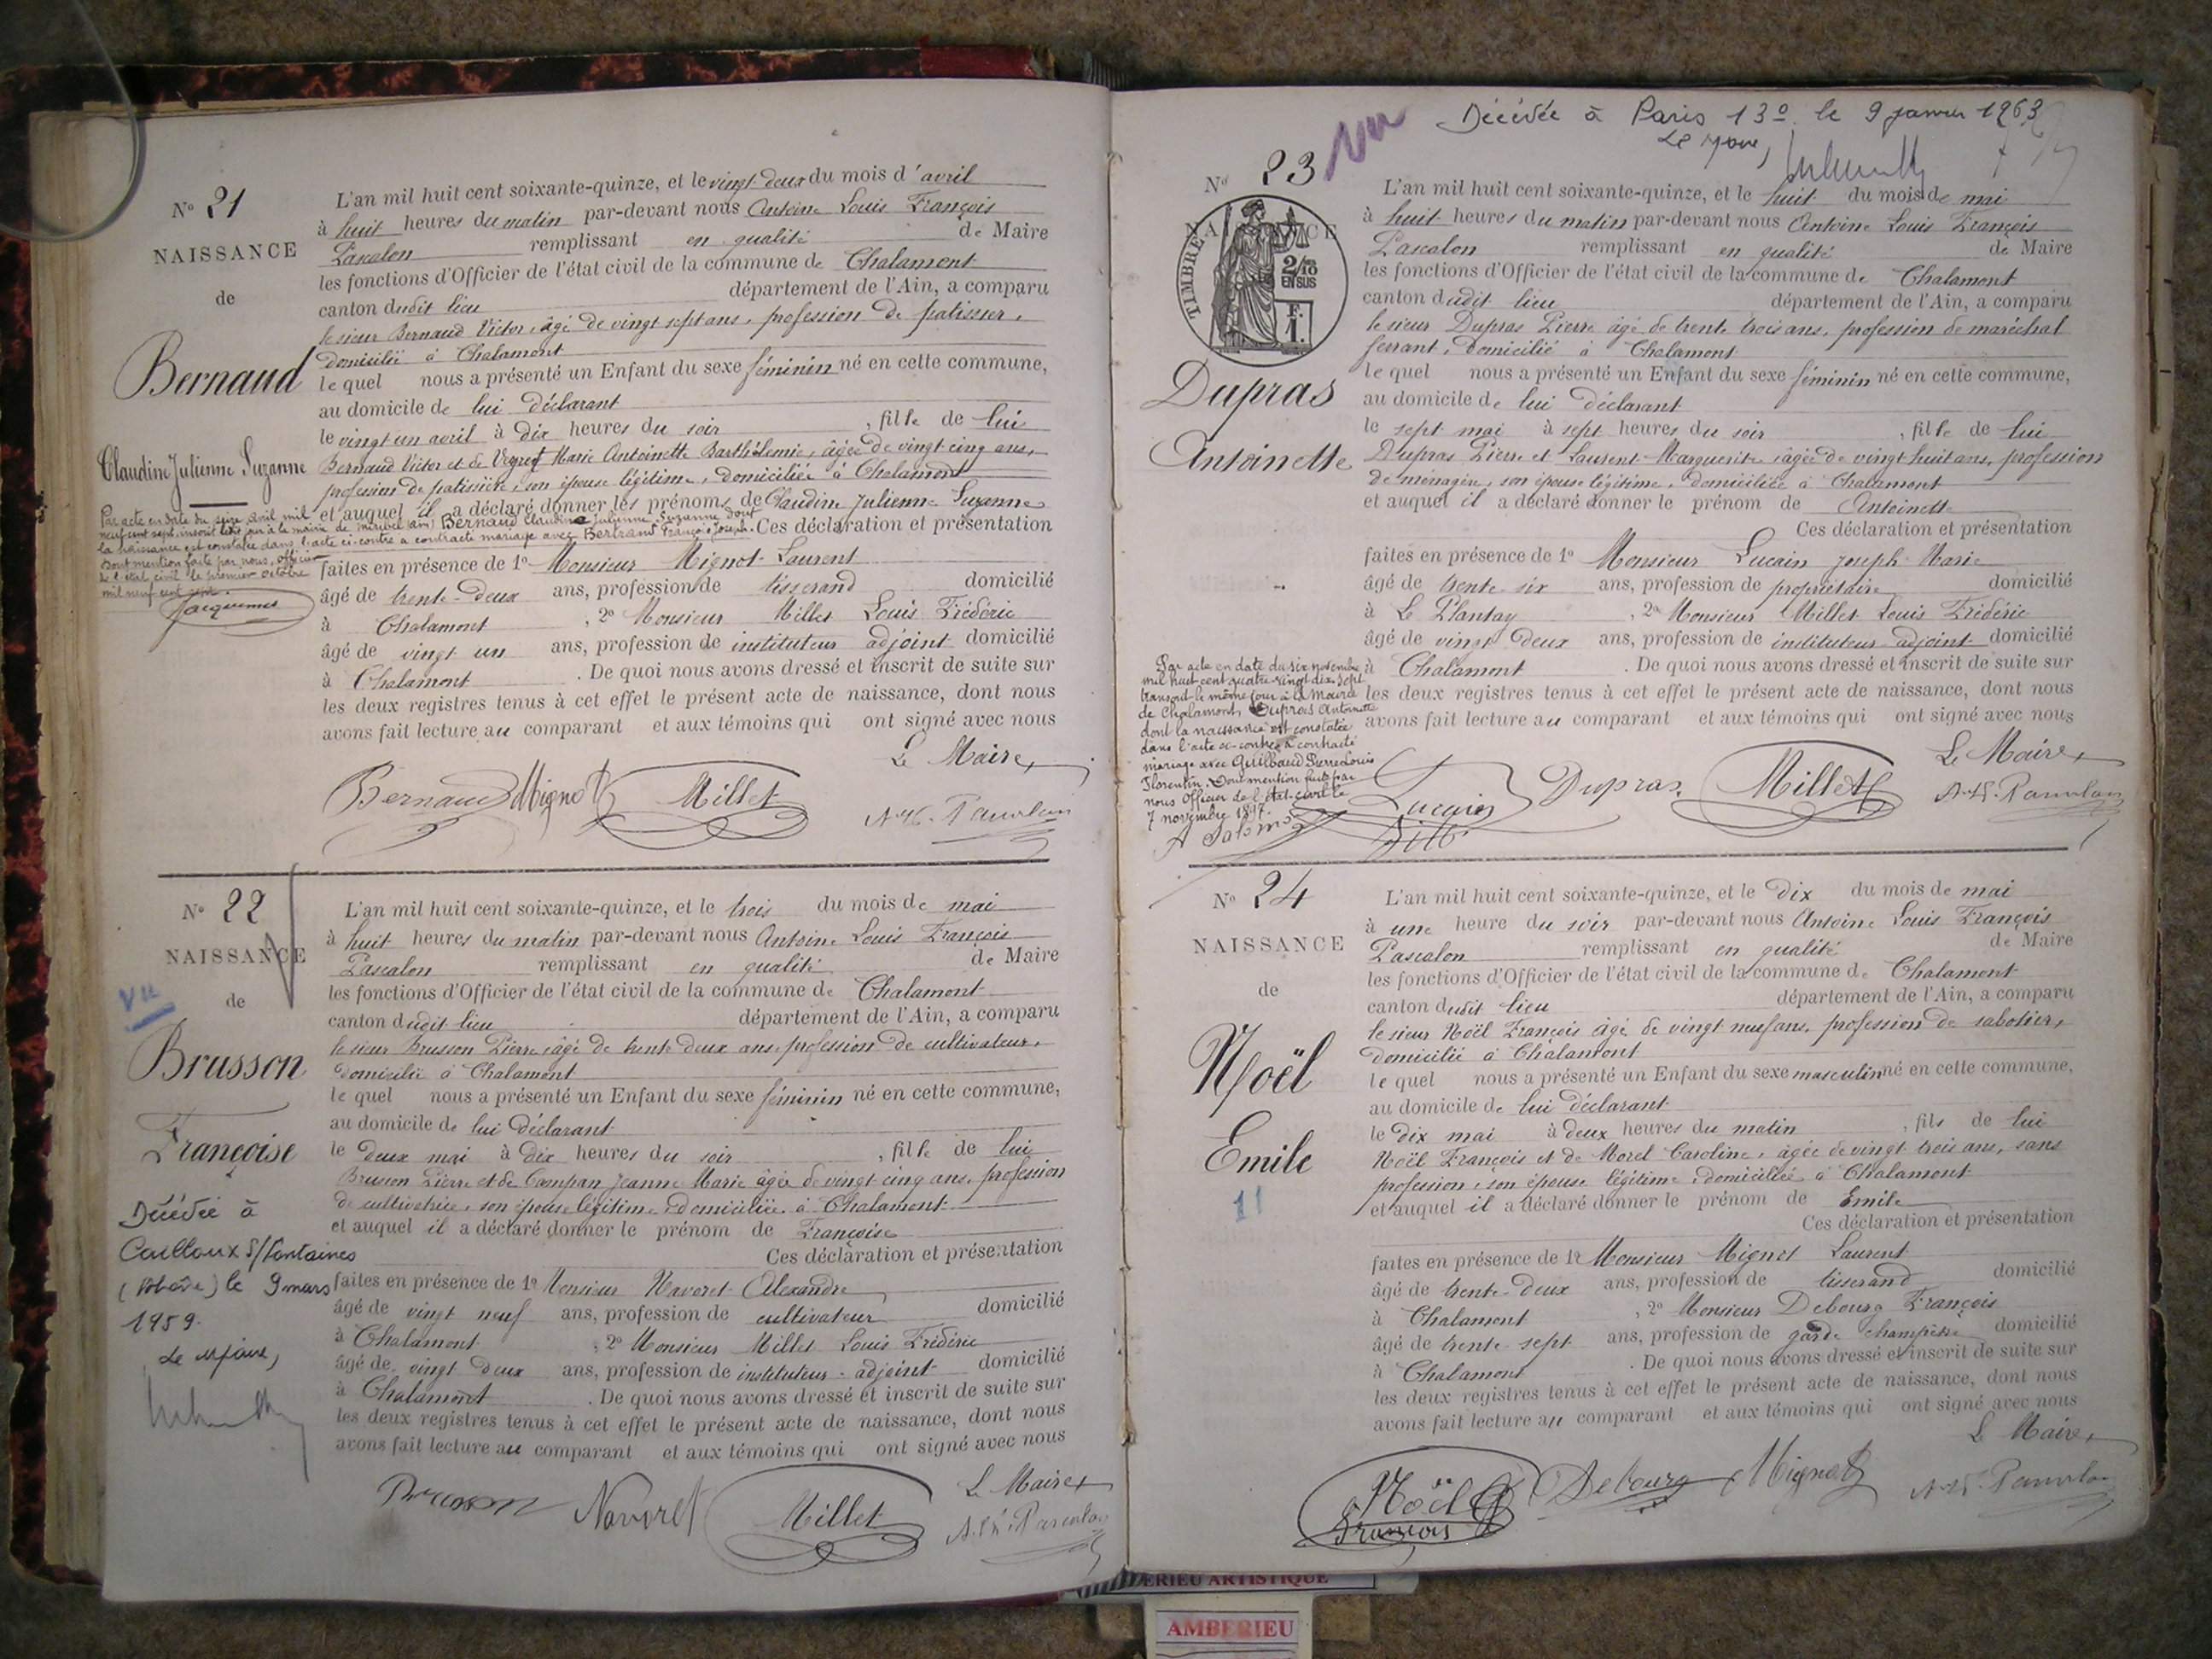 N° 21
NAISSANCE
de
Bernaud
Claudine Julienne Suzanne
Par acte en date du seize avril mil
neuf cent sept, inscrit le dit jour à la mairie de Miribel (Ain) Bernaud Claudine Julienne Suzanne dont
la naissance est constatée dans l'acte ci-contre a contracté mariage avec Bertrand François Joseph.
Dont mention faite par nous, officier
de l'état civil le premier octobre
mil neuf cent sept.
Jacquemes
L'an mil huit cent soixante-quinze, et le vingt-deux du mois d'avril
à huit heures du matin par-devant nous Antoine Louis François
Pascalon remplissant en qualité de Maire
les fonctions d'Officier de l'état civil de la commune de Chalamont
canton dudit lieu département de l'Ain, a comparu
le sieur Bernaud Victor, âgé de vingt sept ans, profession de patissier,
domicilié à Chalamont
lequel nous a présenté un Enfant du sexe féminin né en cette commune,
au domicile de lui déclarant
le vingt un avril à dix heures du soir, fille de lui
Bernaud Victor et de Veyret Marie Antoinette Barthélemie, âgée de vingt cinq ans,
profession de patissière, son épouse légitime, domiciliée à Chalamont
et auquel il a déclaré donner les prénoms de Claudine Julienne Suzanne
Ces déclaration et présentation
faites en présence de 1° Monsieur Mignot Laurent
âgé de trente-deux ans, profession de tisserand domicilié
à Chalamont, 2° Monsieur Millet Louis Frédéric
âgé de vingt un ans, profession de instituteur adjoint domicilié
à Chalamont. De quoi nous avons dressé et inscrit de suite sur
les deux registres tenus à cet effet le présent acte de naissance, dont nous
avons fait lecture au comparant et aux témoins qui ont signé avec nous
Le Maire,
Bernaud Mignot Millet
N° 22
NAISSANCE
de
vu
Brusson
Françoise
Décédée à
Cailloux s/fontaines
(Rhône) le 9 mars
1959.
Le Maire,
L'an mil huit cent soixante-quinze, et le trois du mois de mai
à huit heures du matin par-devant nous Antoine Louis François
Pascalon remplissant en qualité de Maire
les fonctions d'Officier de l'état civil de la commune de Chalamont
canton dudit lieu département de l'Ain, a comparu
le sieur Brusson Pierre, âgé de trente deux ans, profession de cultivateur,
domicilié à Chalamont
lequel nous a présenté un Enfant du sexe féminin né en cette commune,
au domicile de lui déclarant
le deux mai à dix heures du soir, fille de lui
Brusson Pierre et de Campan Jeanne Marie âgée de vingt cinq ans, profession
de cultivatrice, son épouse légitime, domiciliée à Chalamont
et auquel il a déclaré donner le prénom de Françoise
Ces déclaration et présentation
faites en présence de 1° Monsieur Navoret Alexandre
âgé de vingt neuf ans, profession de cultivateur domicilié
à Chalamont, 2° Monsieur Millet Louis Frédéric
âgé de vingt deux ans, profession de instituteur-adjoint domicilié
à Chalamont. De quoi nous avons dressé et inscrit de suite sur
les deux registres tenus à cet effet le présent acte de naissance, dont nous
avons fait lecture au comparant et aux témoins qui ont signé avec nous
Le Maire
Brusson Navoret Millet
vu Décédée à Paris 13° le 9 janvier 1963
Le Maire,
N° 23
NAISSANCE
TIMBRE
2/10
EN SUS
F.
1.
Dupras
Antoinette
Par acte en date du six novembre
mil huit cent quatre-vingt dix sept
transcrit le même jour à la mairie
de Chalamont, Dupras Antoinette
dont la naissance est constatée
dans l'acte ci-contre a contracté
mariage avec Guilbaud Pierre Louis
Florentin. Dont mention faite par
nous Officier de l'état-civil le
7 novembre 1897.
L'an mil huit cent soixante-quinze, et le huit du mois de mai
à huit heures du matin par-devant nous Antoine Louis François
Pascalon remplissant en qualité de Maire
les fonctions d'Officier de l'état civil de la commune de Chalamont
canton dudit lieu département de l'Ain, a comparu
le sieur Dupras Pierre âgé de trente trois ans, profession de maréchal
ferrant, domicilié à Chalamont
lequel nous a présenté un Enfant du sexe féminin né en cette commune,
au domicile de lui déclarant
le sept mai à sept heures du soir, fille de lui
Dupras Pierre et Laurent Marguerite, âgée de vingt huit ans, profession
de ménagère, son épouse légitime, domiciliée à Chalamont
et auquel il a déclaré donner le prénom de Antoinette
Ces déclaration et présentation
faites en présence de 1° Monsieur Lucain Joseph Marie
âgé de trente six ans, profession de propriétaire domicilié
à Le Plantay, 2° Monsieur Millet Louis Frédéric
âgé de vingt deux ans, profession de instituteur-adjoint domicilié
à Chalamont. De quoi nous avons dressé et inscrit de suite sur
les deux registres tenus à cet effet le présent acte de naissance, dont nous
avons fait lecture au comparant et aux témoins qui ont signé avec nous
Le Maire,
Lucain Dupras Millet
N° 24
NAISSANCE
de
Noël
Emile
11
L'an mil huit cent soixante-quinze, et le dix du mois de mai
à une heure du soir par-devant nous Antoine Louis François
Pascalon remplissant en qualité de Maire
les fonctions d'Officier de l'état civil de la commune de Chalamont
canton dudit lieu département de l'Ain, a comparu
le sieur Noël François âgé de vingt neuf ans, profession de sabotier,
domicilié à Chalamont
lequel nous a présenté un Enfant du sexe masculin né en cette commune,
au domicile de lui déclarant
le dix mai à deux heures du matin, fils de lui
Noël François et de Morel Caroline, âgée de vingt trois ans, sans
profession, son épouse légitime, domiciliée à Chalamont
et auquel il a déclaré donner le prénom de Emile
Ces déclaration et présentation
faites en présence de 1° Monsieur Mignot Laurent
âgé de trente-deux ans, profession de tisserand domicilié
à Chalamont, 2° Monsieur Debourg François
âgé de trente-sept ans, profession de garde champêtre domicilié
à Chalamont. De quoi nous avons dressé et inscrit de suite sur
les deux registres tenus à cet effet le présent acte de naissance, dont nous
avons fait lecture au comparant et aux témoins qui ont signé avec nous
Le Maire,
Noël François Debourg Mignot
ERIEU ARTISTIQUE
AMBERIEU